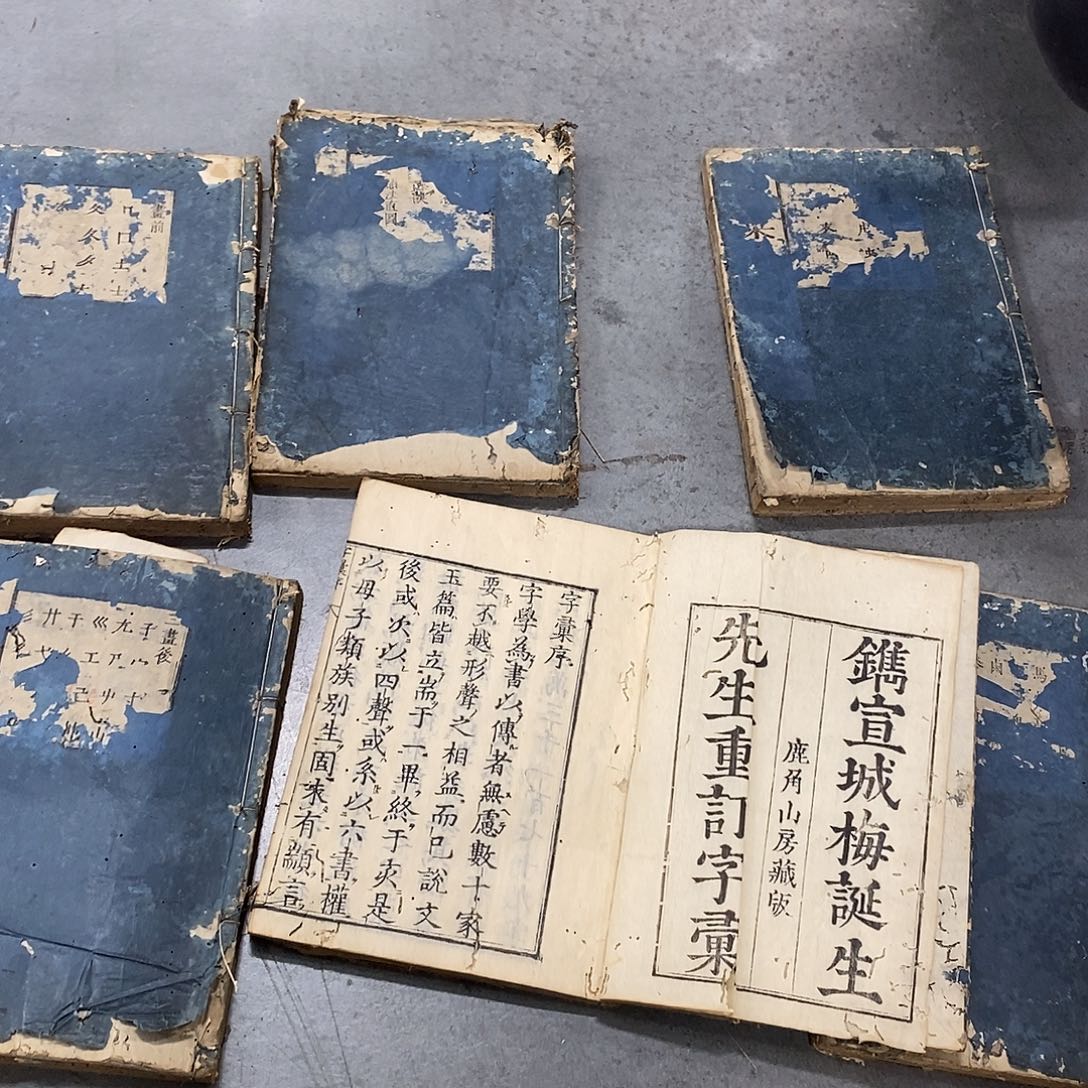 鐫宣城梅誕生
鹿角山房藏版
先生重訂字彙
字彙序
字學爲書以傳者無慮數十家
要不越形聲之相益而已說文
玉篇皆立耑于一畢終于亥是
後或次以四聲或系以六書權
以母子類族別生固有顓言
畫前
口囗土士
夂夊夕
畫後
子宀寸
尢尸屮
巛工己
干
廾
彡
馬